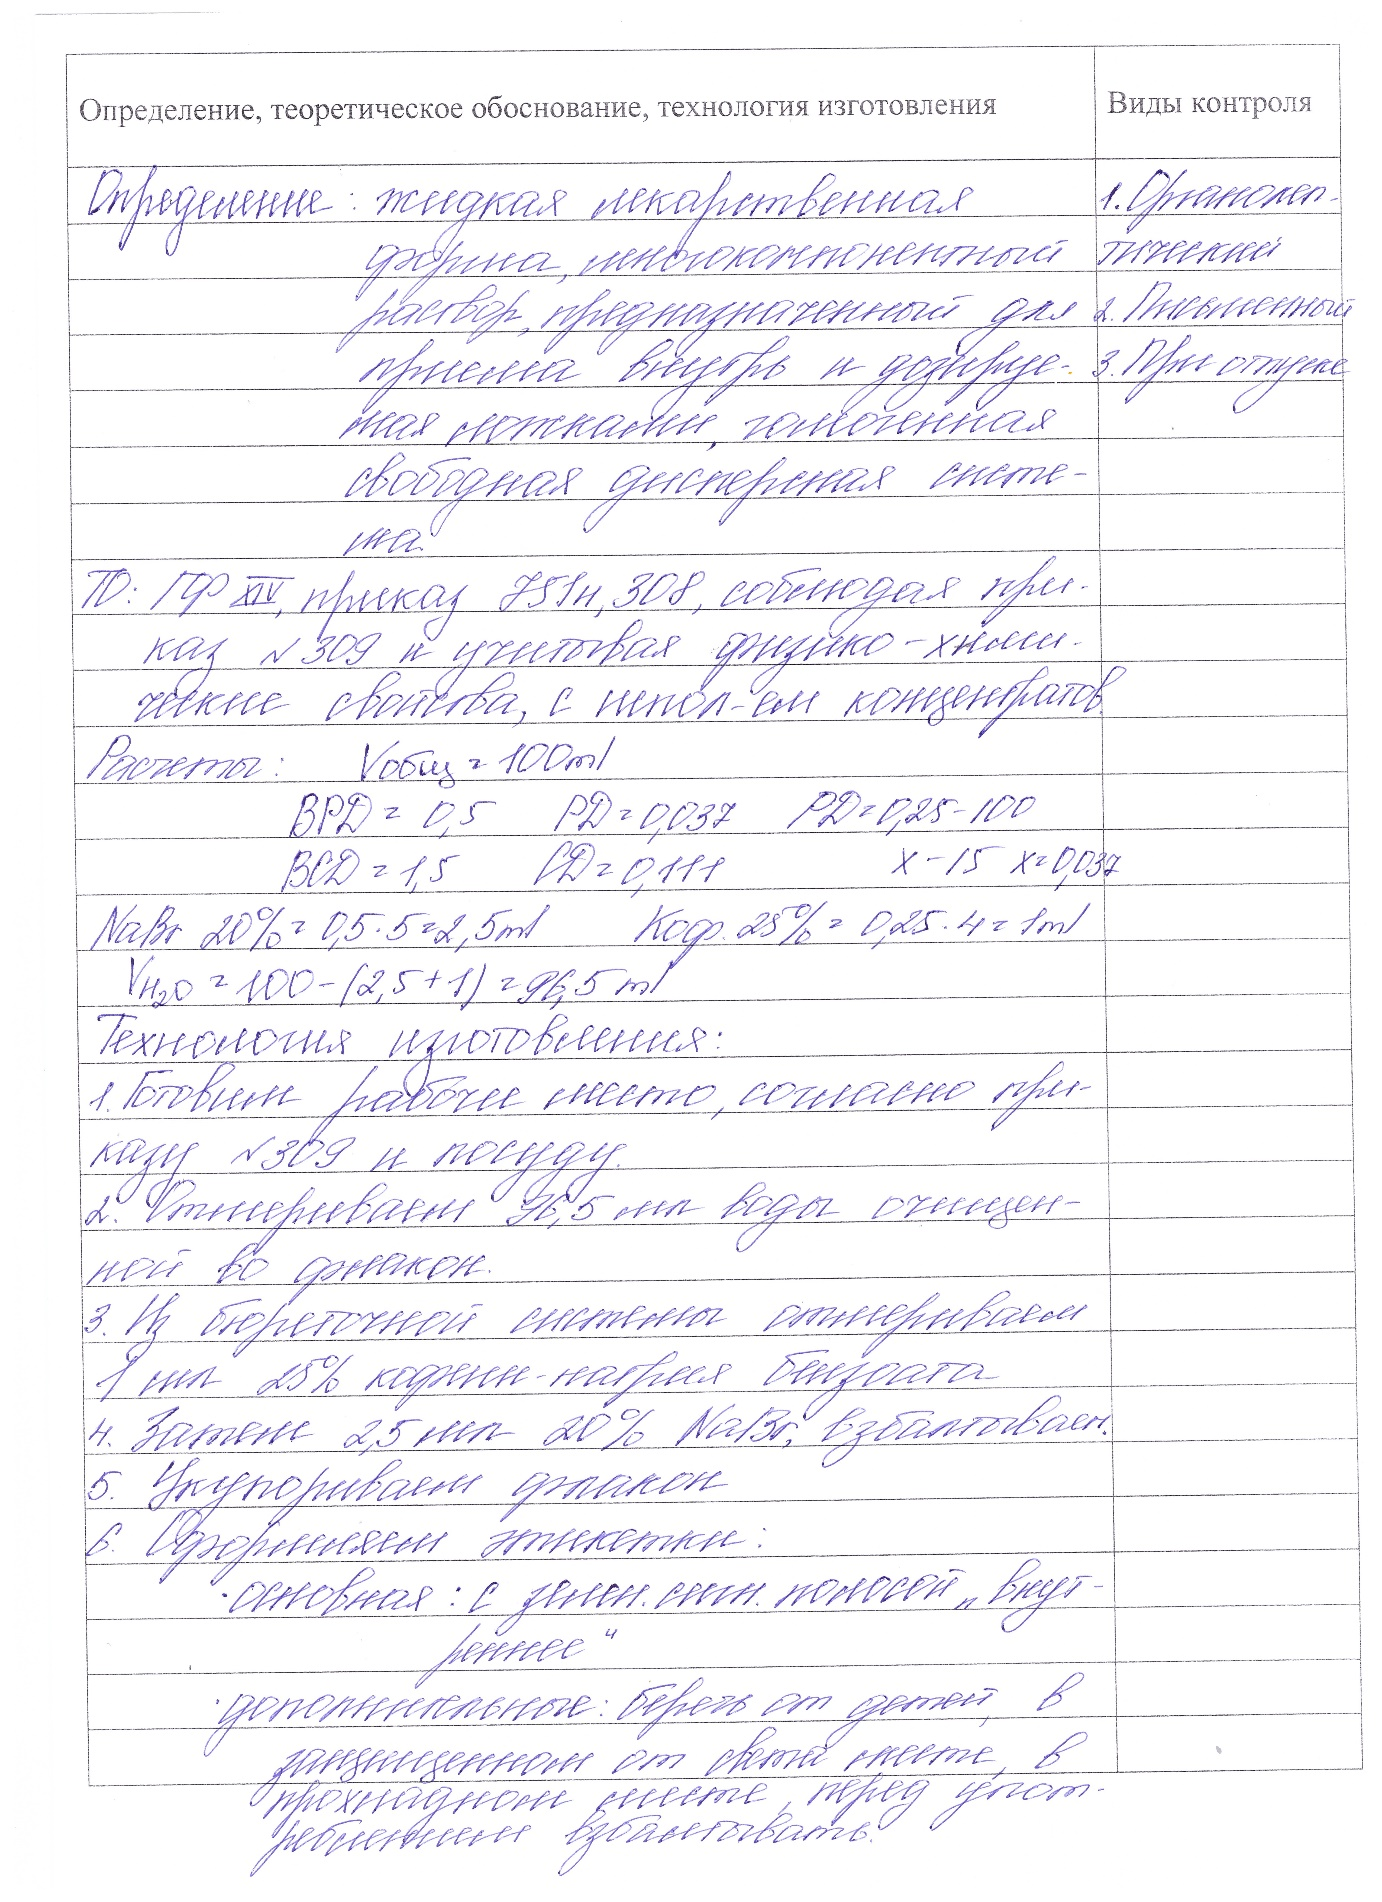 Определение, теоретическое обоснование, технология изготовления
Виды контроля
Определение: жидкая лекарственная
форма, многокомпонентный
раствор, предназначенный для
приема внутрь и дозируе-
мая ложками, гомогенная
свободная дисперсная систе-
ма.
1. Органолеп-
тический
2. Письменный
3. При отпуске
ТО: ГФ XIV, приказ 751н, 308, соблюдая при-
каз №309 и учитывая физико-хими-
ческие свойства, с испол-ем концентратов.
Расчеты: Vобщ = 100ml
ВРД = 0,5 РД = 0,037 РД = 0,25 - 100
ВСД = 1,5 СД = 0,111 х - 15 х = 0,037
NaBr 20% = 0,5 · 5 = 2,5ml Коф. 25% = 0,25 · 4 = 1ml
VH2O = 100 - (2,5 + 1) = 96,5 ml
Технология изготовления:
1. Готовим рабочее место, согласно при-
казу №309 и посуду.
2. Отмериваем 96,5 мл воды очищен-
ной во флакон.
3. Из бюреточной системы отмериваем
1 мл 25% кофеин-натрия бензоата
4. Затем 2,5 мл 20% NaBr, взбалтываем.
5. Укупориваем флакон
6. Оформляем этикетки:
· основная: с зелен. сигн. полосой „внут-
реннее“
· дополнительные: беречь от детей, в
защищенном от света месте, в
прохладном месте, перед упот-
реблением взбалтывать.